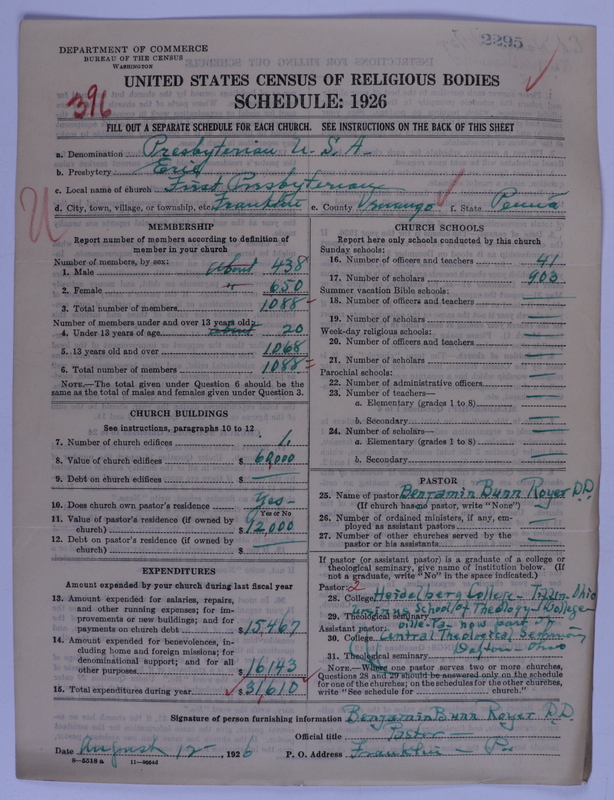 2295
DEPARTMENT OF COMMERCE
BUREAU OF THE CENSUS
WASHINGTON
UNITED STATES CENSUS OF RELIGIOUS BODIES
SCHEDULE: 1926
396
FILL OUT A SEPARATE SCHEDULE FOR EACH CHURCH. SEE INSTRUCTIONS ON THE BACK OF THIS SHEET
a. Denomination Presbyterian U.S.A.
b. Presbytery Erie
c. Local name of church First Presbyterian
d. City, town, village, or township, etc. Franklin e. County Venango f. State Penna
U
MEMBERSHIP
Report number of members according to definition of
member in your church
Number of members, by sex:
1. Male About 438
2. Female " 650
3. Total number of members 1088
Number of members under and over 13 years old:
4. Under 13 years of age about 20
5. 13 years old and over 1068
6. Total number of members 1088
NOTE.—The total given under Question 6 should be
the same as the total of males and females given under Question 3.
CHURCH BUILDINGS
See instructions, paragraphs 10 to 12
7. Number of church edifices 1.
8. Value of church edifices $ 60,000
9. Debt on church edifices $
10. Does church own pastor's residence Yes-
Yes or No
11. Value of pastor's residence (if owned by
church) $ 12,000
12. Debt on pastor's residence (if owned by
church) $
EXPENDITURES
Amount expended by your church during last fiscal year
13. Amount expended for salaries, repairs,
and other running expenses; for im-
provements or new buildings; and for
payments on church debt $ 15,467
14. Amount expended for benevolences, in-
cluding home and foreign missions; for
denominational support; and for all
other purposes $ 16143
15. Total expenditures during year $ 31,610
CHURCH SCHOOLS
Report here only schools conducted by this church
Sunday schools:
16. Number of officers and teachers 41
17. Number of scholars 903
Summer vacation Bible schools:
18. Number of officers and teachers
19. Number of scholars
Week-day religious schools:
20. Number of officers and teachers
21. Number of scholars
Parochial schools:
22. Number of administrative officers
23. Number of teachers—
a. Elementary (grades 1 to 8)
b. Secondary
24. Number of scholars—
a. Elementary (grades 1 to 8)
b. Secondary
PASTOR
25. Name of pastor Benjamin Bunn Royer D.D.
(If church has no pastor, write "None")
26. Number of ordained ministers, if any, em-
ployed as assistant pastors
27. Number of other churches served by the
pastor or his assistants
If pastor (or assistant pastor) is a graduate of a college or
theological seminary, give name of institution below. (If
not a graduate, write "No" in the space indicated.)
Pastor: 2
28. College Heidelberg College - Tiffin Ohio
29. Theological seminary Ursinus School of Theology
Assistant pastor: now part of
30. College Central Theological Seminary
31. Theological seminary Dayton Ohio
NOTE.—Where one pastor serves two or more churches,
Questions 28 and 29 should be answered only on the schedule
for one of the churches; on the schedules for the other churches,
write "See schedule for church."
Signature of person furnishing information Benjamin Bunn Royer D.D.
Official title Pastor-
Date August 12, 1926 P. O. Address Franklin - Pa
8—5518 a